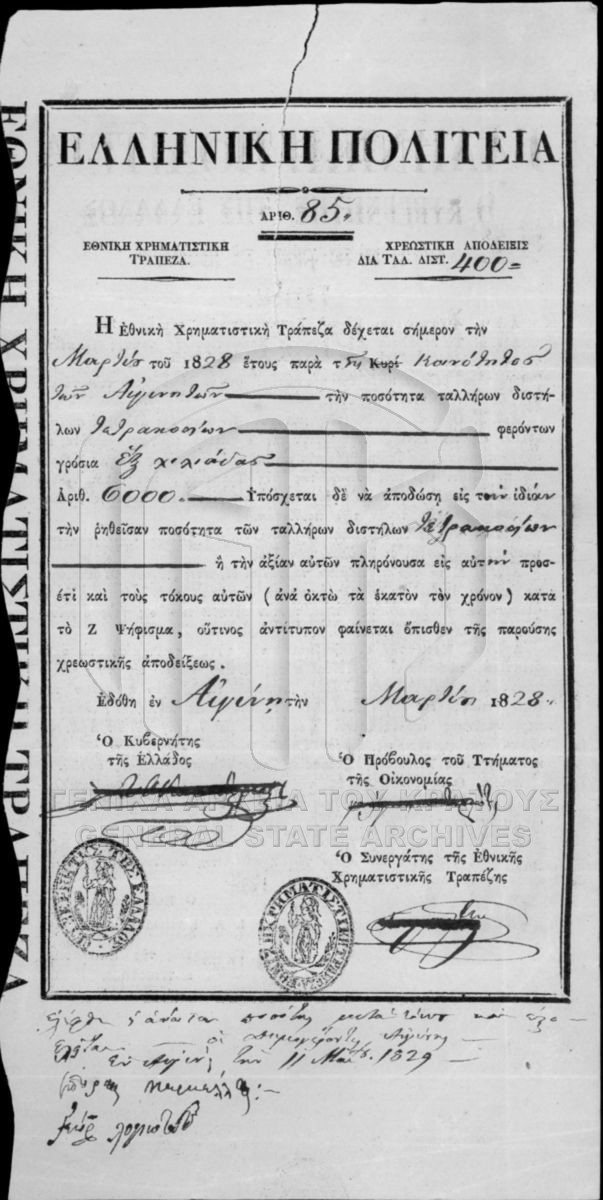 ΕΛΛΗΝΙΚΗ ΠΟΛΙΤΕΙΑ
ΑΡΙΘ. 85.
ΕΘΝΙΚΗ ΧΡΗΜΑΤΙΣΤΙΚΗ
ΤΡΑΠΕΖΑ.
ΧΡΕΩΣΤΙΚΗ ΑΠΟΔΕΙΞΙΣ
ΔΙΑ ΤΑΛ. ΔΙΣΤ. 400=
Ἡ Ἐθνικὴ Χρηματιστικὴ Τράπεζα δέχεται σήμερον τὴν
Μαρτίου τοῦ 1828 ἔτους παρὰ τῆς Κυρί Κοινότητος
τῶν Αἰγινητῶν τὴν ποσότητα ταλλήρων διστή-
λων τετρακοσίων φερόντων
γρόσια ἓξ χιλιάδας
Ἀριθ. 6000. Ὑπόσχεται δὲ νὰ ἀποδώσῃ εἰς τὴν ἰδίαν
τὴν ῥηθεῖσαν ποσότητα τῶν ταλλήρων διστήλων τετρακοσίων
ἢ τὴν ἀξίαν αὐτῶν πληρόνουσα εἰς αὐτὴν προσ-
έτι καὶ τοὺς τόκους αὐτῶν ( ἀνὰ ὀκτὼ τὰ ἑκατὸν τὸν χρόνον ) κατὰ
τὸ Ζ Ψήφισμα, οὕτινος ἀντίτυπον φαίνεται ὄπισθεν τῆς παρούσης
χρεωστικῆς ἀποδείξεως.
Ἐδόθη ἐν Αἰγίνῃ τὴν Μαρτίου 1828.
Ὁ Κυβερνήτης
τῆς Ἑλλάδος
Ὁ Πρόβουλος τοῦ Ττήματος
τῆς Οἰκονομίας
ΓΕΝΙΚΑ ΑΡΧΕΙΑ ΤΟΥ ΚΡΑΤΟΥΣ
GENERAL STATE ARCHIVES
Ὁ Συνεργάτης τῆς Ἐθνικῆς
Χρηματιστικῆς Τραπέζης
Ο ΚΥΒΕΡΝΗΤΗΣ ΤΗΣ ΕΛΛΑΔΟΣ
ποσότης μετὰ
οἱ δημογέροντες Αἰγίνης
Ἐν Αἰγίνῃ τὴν 11 1829
ΕΘΝΙΚΗ ΧΡΗΜΑΤΙΣΤΙΚΗ ΤΡΑΠΕΖΑ